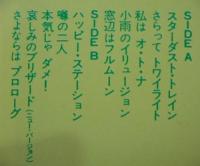 SIDE A
スターダスト・トレイン
さらって トワイライト
私は オ・ト・ナ
小雨のイリュージョン
窓辺はフルムーン
SIDE B
ハッピー・ステーション
噂の二人
本気じゃ ダメ!
哀しみのブリザード(ニューバージョン)
さよならは プロローグ